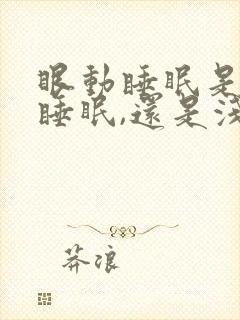 眼動睡眠是
睡眠,還是淺
莽浪